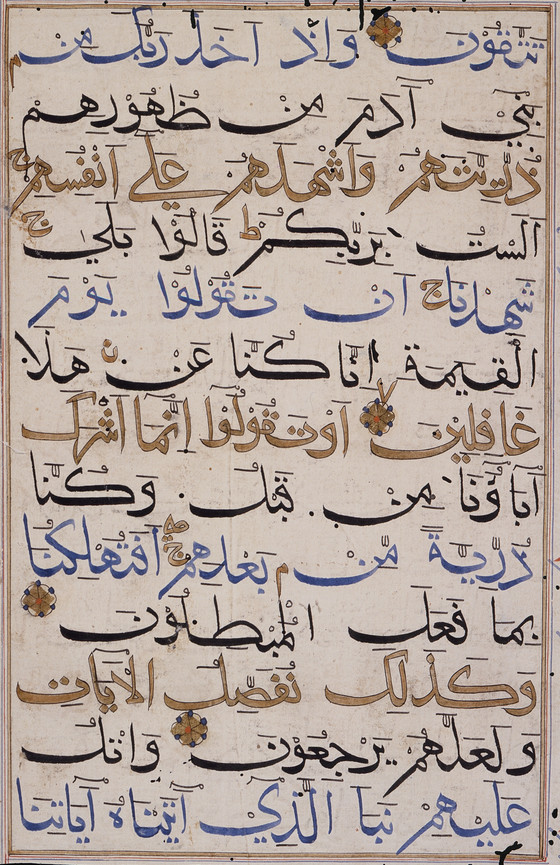 تتقون واذ اخذ ربك من م
بني آدم من ظهورهم
ذريتهم واشهدهم على انفسهم ج
الست بربكم ط قالوا بلى ج
شهدنا ج ان تقولوا يوم
القيمة انا كنا عن هذا
غافلين او تقولوا انما اشرك
آباؤنا من قبل وكنا
ذرية من م بعدهم ج افتهلكنا
بما فعل المبطلون
وكذلك نفصل الايات
ولعلهم يرجعون واتل
عليهم نبا الذي آتيناه آياتنا